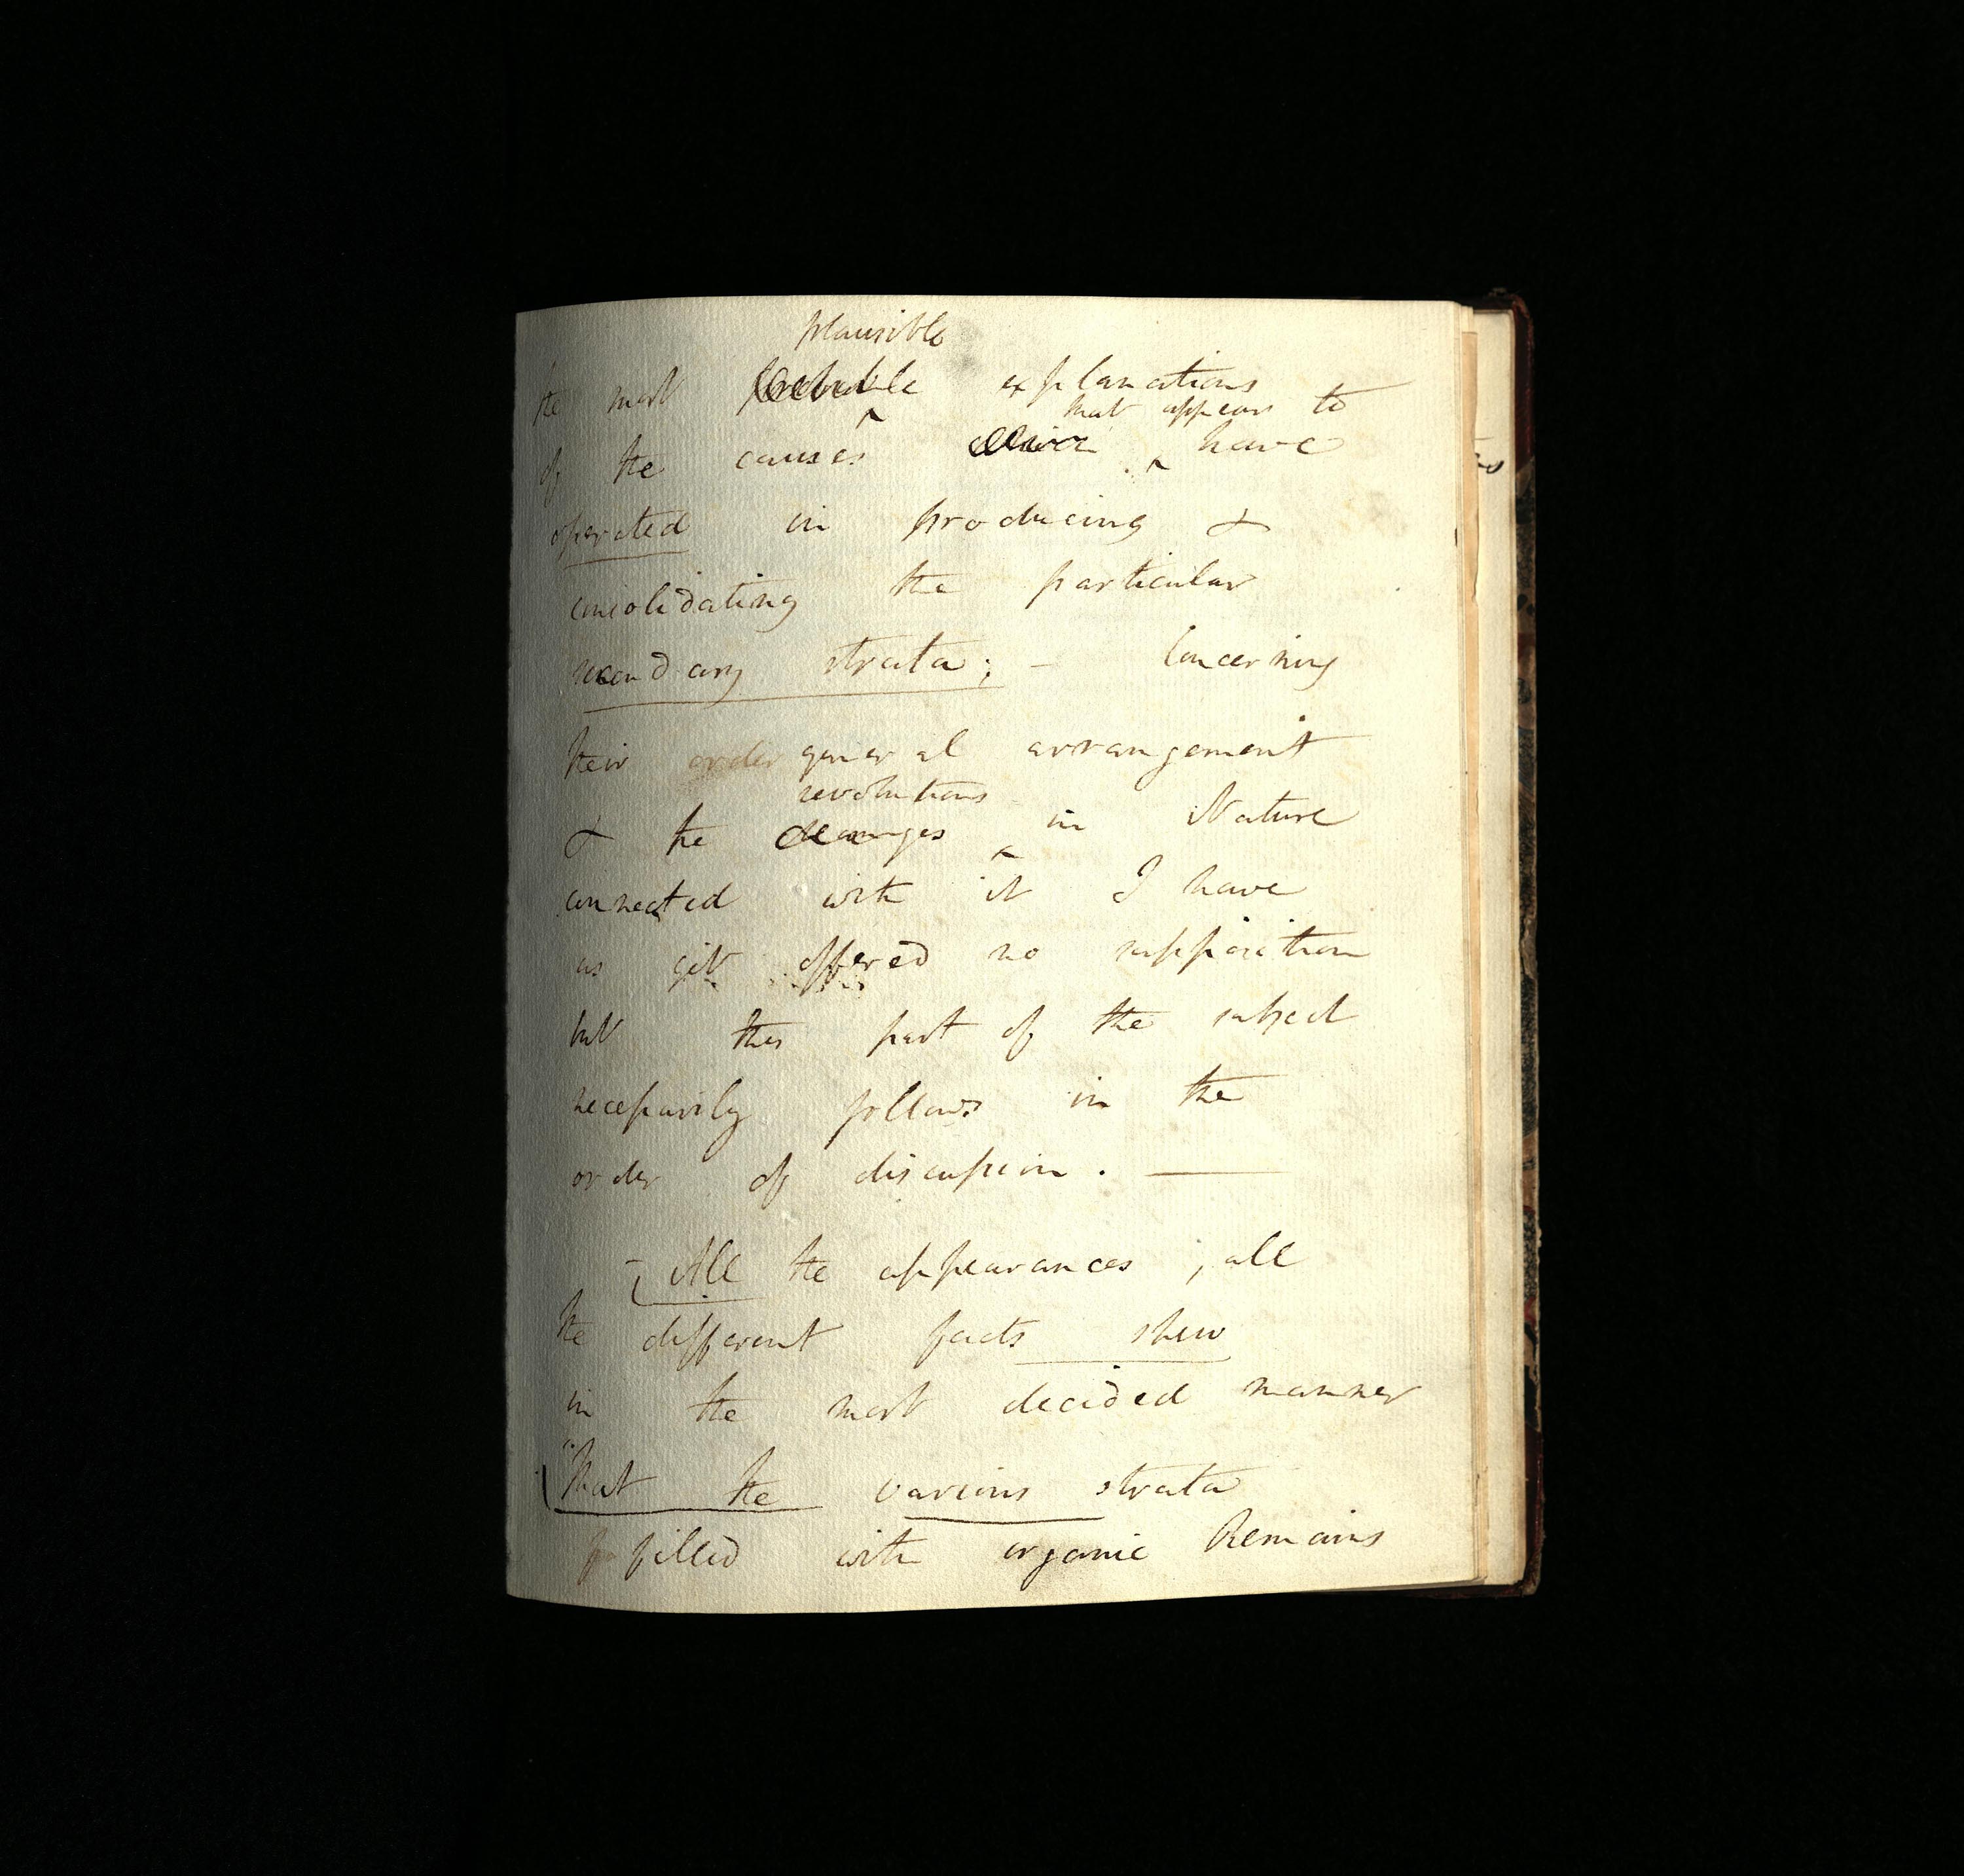 plausible
the most probable explanations
that appear to
of the causes which have
operated in producing &
consolidating the particular
secondary strata; – Concerning
their order general arrangement
revolutions
& the changes in Nature
connected with it I have
as yet offered no supposition
but this part of the subject
necessarily follows in the
order of discussion. —
– All the appearances, all
the different facts shew
in the most decided manner
that the various strata
filled with organic Remains